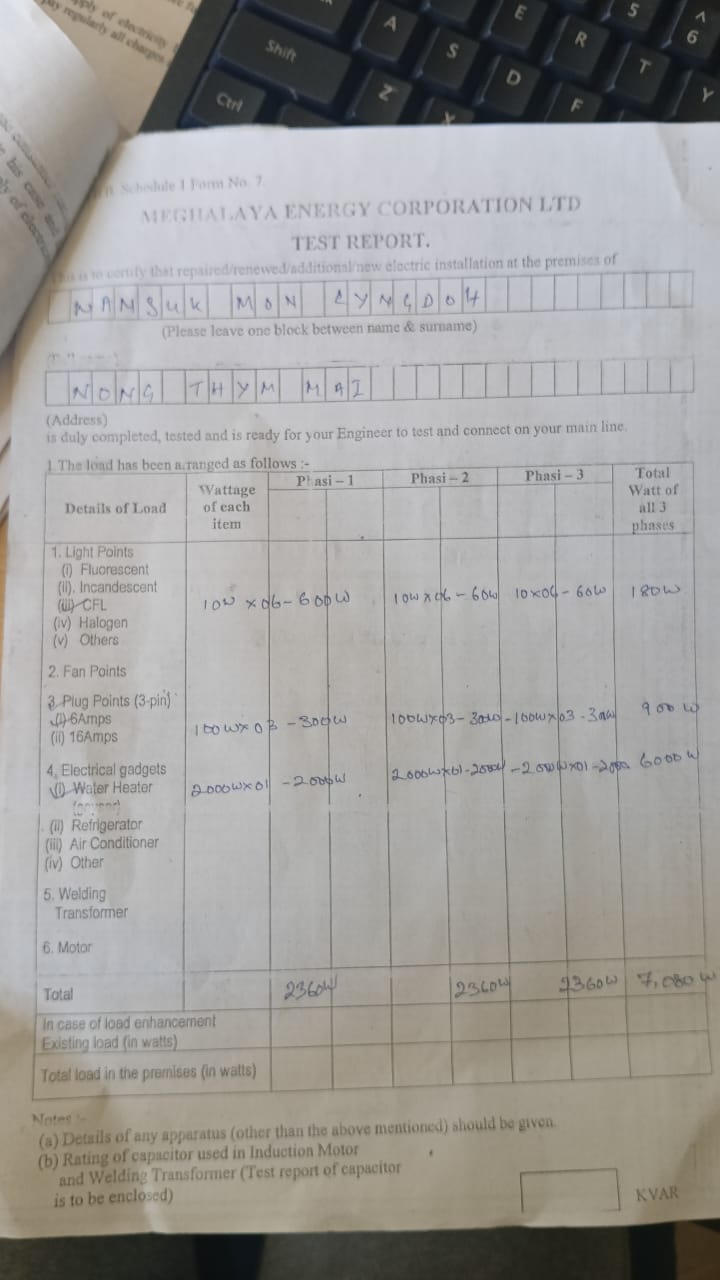 pply of electricity
pay regularly all charges
his case and
ly of electri
Shift
Ctrl
A
S
Z
X
E
D
R
F
5
T
^
6
Y
Schedule I Form No. 7.
MEGHALAYA ENERGY CORPORATION LTD
TEST REPORT.
This is to certify that repaired/renewed/additional/new electric installation at the premises of
NANSUK MON LYNGDOH
(Please leave one block between name & surname)
NONG THYM MAI
(Address)
is duly completed, tested and is ready for your Engineer to test and connect on your main line.
1 The load has been arranged as follows :-
Details of Load Wattage of each item Phasi – 1 Phasi – 2 Phasi – 3 Total Watt of all 3 phases
1. Light Points
(i) Fluorescent
(ii). Incandescent
(iii) CFL 10W × 06 – 600W 10W × 06 – 60W 10×06 – 60W 180W
(iv) Halogen
(v) Others
2. Fan Points
3. Plug Points (3-pin)
(i) 6Amps 100W × 03 – 300W 100W×03 – 300W – 100W×03 - 300W 900W
(ii) 16Amps
4. Electrical gadgets
(i) Water Heater 2000W×01 – 2000W 2000W×01 - 2000W – 2000W×01 – 2000 6000W
(ii) Refrigerator
(iii) Air Conditioner
(iv) Other
5. Welding
Transformer
6. Motor
Total 2360W 2360W 2360W 7,080W
In case of load enhancement
Existing load (in watts)
Total load in the premises (in watts)
Notes :-
(a) Details of any apparatus (other than the above mentioned) should be given.
(b) Rating of capacitor used in Induction Motor
and Welding Transformer (Test report of capacitor
is to be enclosed)
KVAR